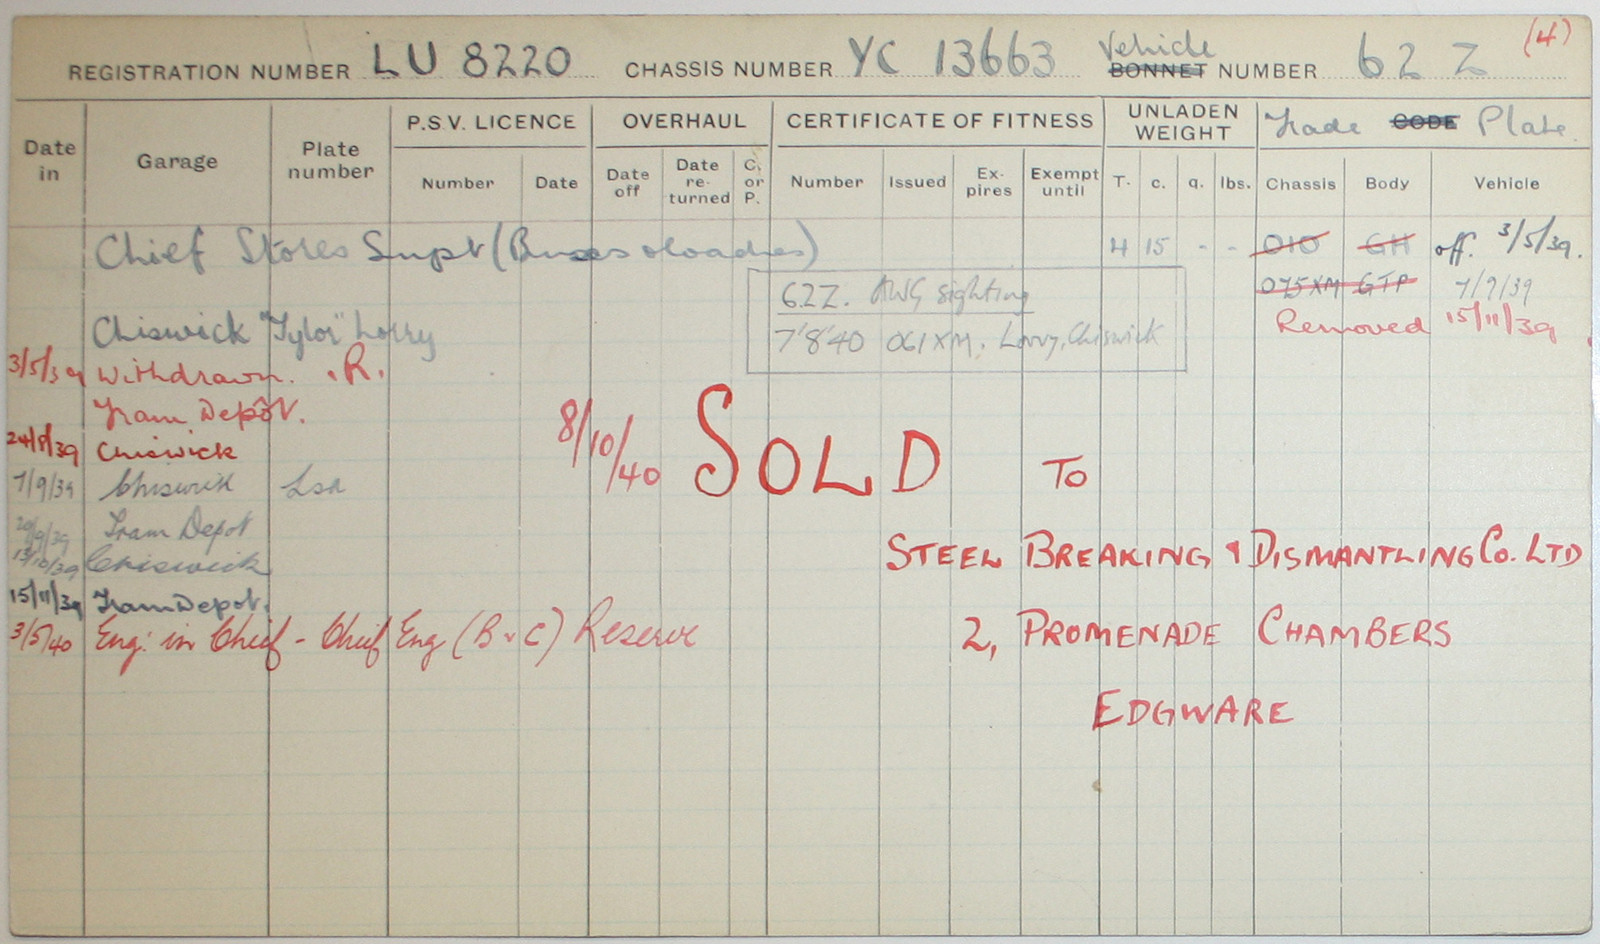 (4)
REGISTRATION NUMBER LU 8220 CHASSIS NUMBER YC 13663 Vehicle BONNET NUMBER 62 Z
Date in Garage Plate number P.S.V. LICENCE OVERHAUL CERTIFICATE OF FITNESS UNLADEN WEIGHT Trade CODE Plate
Number Date Date off Date re-turned C. or P. Number Issued Ex-pires Exempt until T. c. q. lbs. Chassis Body Vehicle
Chief Stores Supt (Buses & Coaches) 4 15 - - 010 GH off. 3/5/39.
62Z. AWG sighting 075XM GTP 7/9/39
Chiswick "Tylor" Lorry 7'8'40 061XM, Lorry, Chiswick Removed 15/11/39
3/5/39 Withdrawn. .R.
Tram Depôt.
24/8/39 Chiswick 8/10/40 SOLD To
7/9/39 Chiswick
20/9/39 Tram Depot
13/10/39 Chiswick STEEL BREAKING & DISMANTLING Co. LTD
15/11/39 Tram Depot.
3/5/40 Eng: in Chief - Chief Eng (B & C) Reserve 2, PROMENADE CHAMBERS
EDGWARE